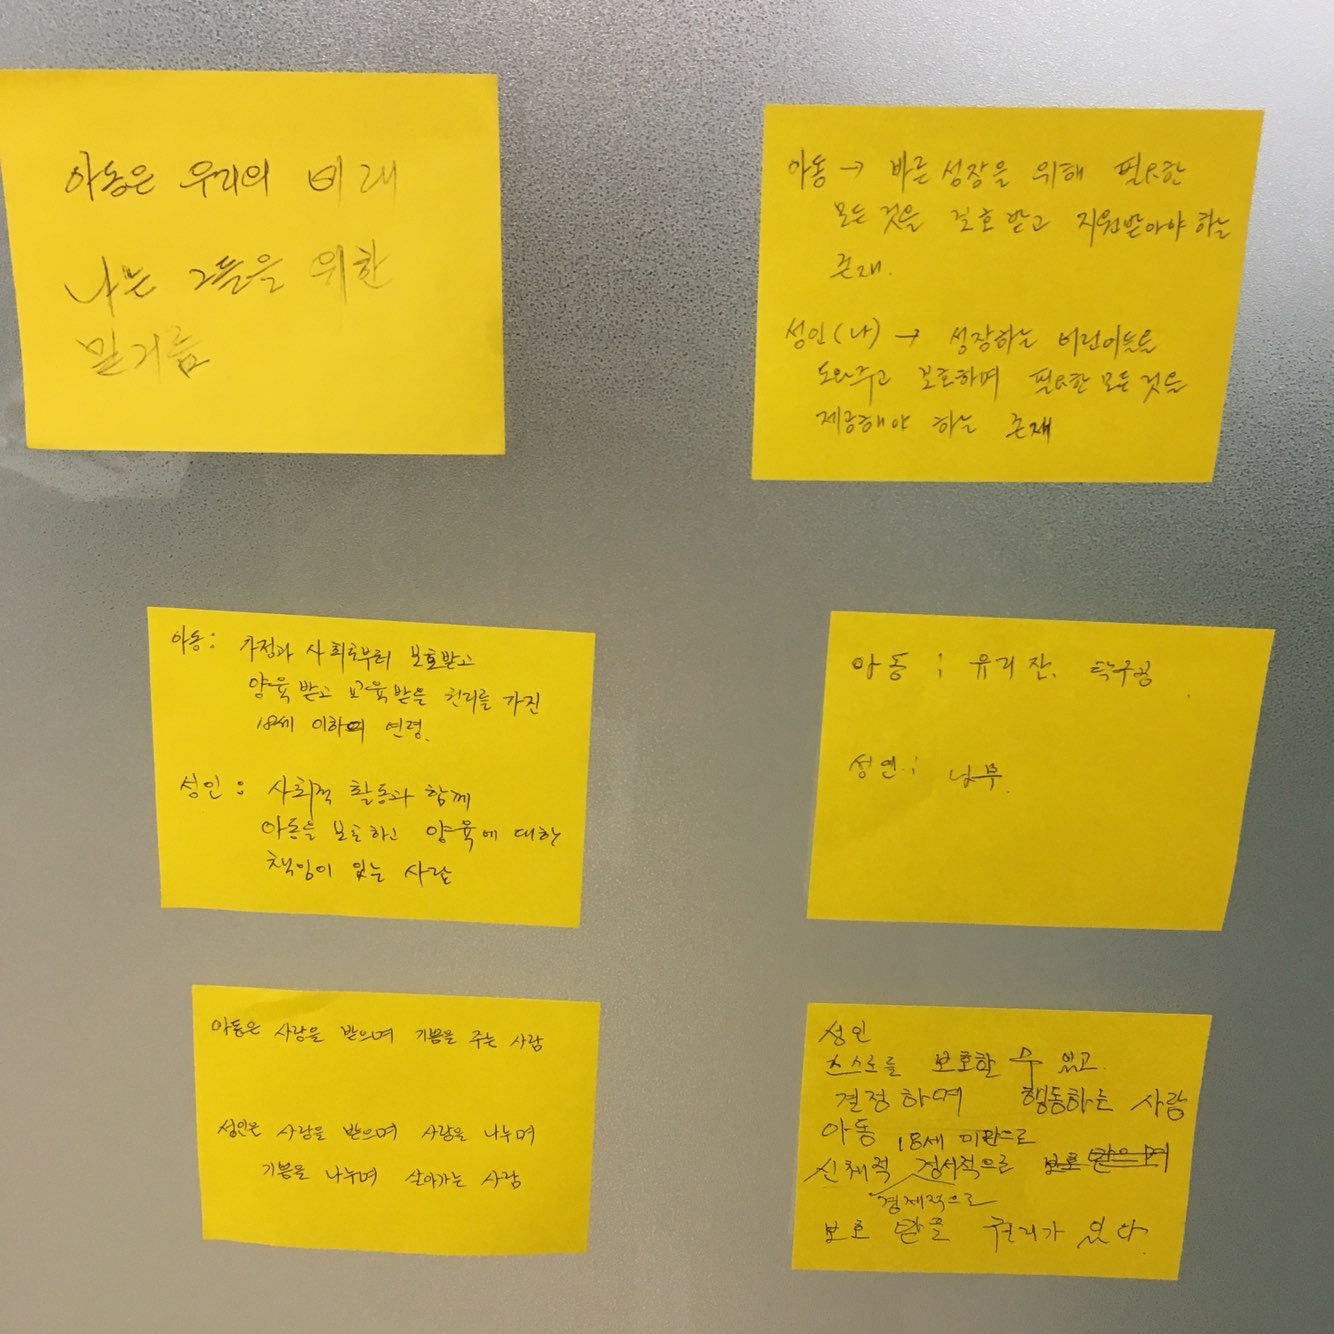 아동은 우리의 미래
나는 그들을 위한
밑거름
아동 → 바른 성장을 위해 필요한
모든 것을 보호 받고 지원받아야 하는
존재.
성인(나) → 성장하는 어린이들을
도와주고 보호하며 필요한 모든 것을
제공해야 하는 존재
아동: 가정과 사회로부터 보호받고
양육 받고 교육받을 권리를 가진
18세 이하의 연령.
성인: 사회적 활동과 함께
아동을 보호하고 양육에 대한
책임이 있는 사람
아동 ; 유리잔. 탁구공.
성연; 나무.
아동은 사랑을 받으며 기쁨을 주는 사람
성인은 사랑을 받으며 사랑을 나누며
기쁨을 나누며 살아가는 사람
성인
스스로를 보호할 수 있고.
결정하며 행동하는 사람
아동 18세 미만으로
신체적 정서적으로 보호 받으며
경제적으로
보호 받을 권리가 있다.